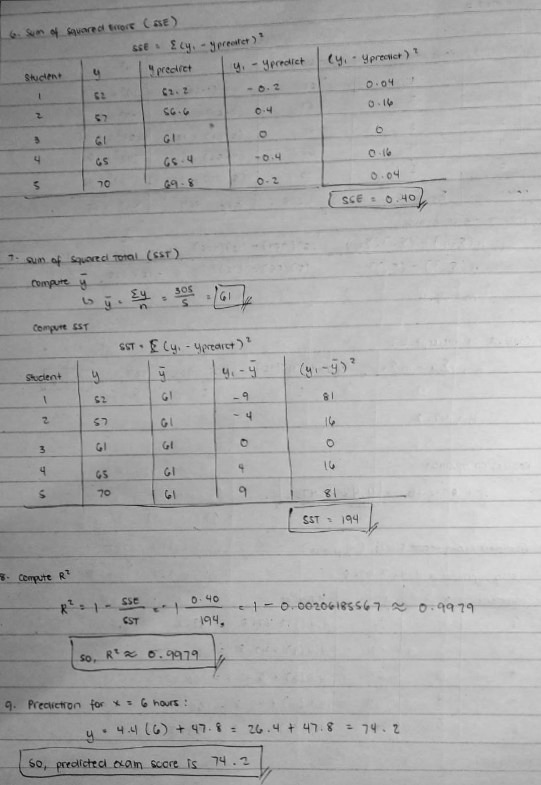 6. Sum of squared errors (SSE)
SSE = Σ(yᵢ - ypredict)²
Student y ypredict yᵢ - ypredict (yᵢ - ypredict)²
1 52 52.2 -0.2 0.04
2 57 56.6 0.4 0.16
3 61 61 0 0
4 65 65.4 -0.4 0.16
5 70 69.8 0.2 0.04
SSE = 0.40
7. Sum of Squared Total (SST)
Compute ȳ
↳ ȳ = Σy/n = 305/5 = 61
Compute SST
SST = Σ(yᵢ - ypredict)²
Student y ȳ yᵢ - ȳ (yᵢ - ȳ)²
1 52 61 -9 81
2 57 61 -4 16
3 61 61 0 0
4 65 61 4 16
5 70 61 9 81
SST = 194
8. Compute R²
R² = 1 - SSE/SST = -1 0.40/194 = 1 - 0.00206185567 ≈ 0.9979
So, R² ≈ 0.9979
9. Prediction for x = 6 hours:
y = 4.4(6) + 47.8 = 26.4 + 47.8 = 74.2
So, predicted exam score is 74.2